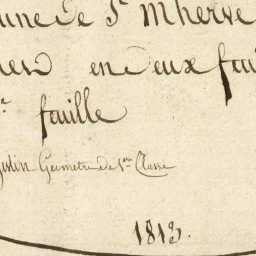 une de St Mherve
en deux feui
re feuille
Geometre de 1ere Classe
1813.